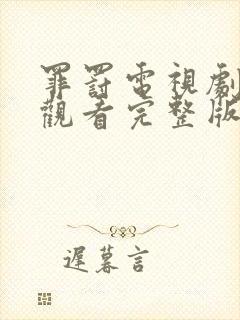 罪罰電視劇
觀看完整版
遲暮言